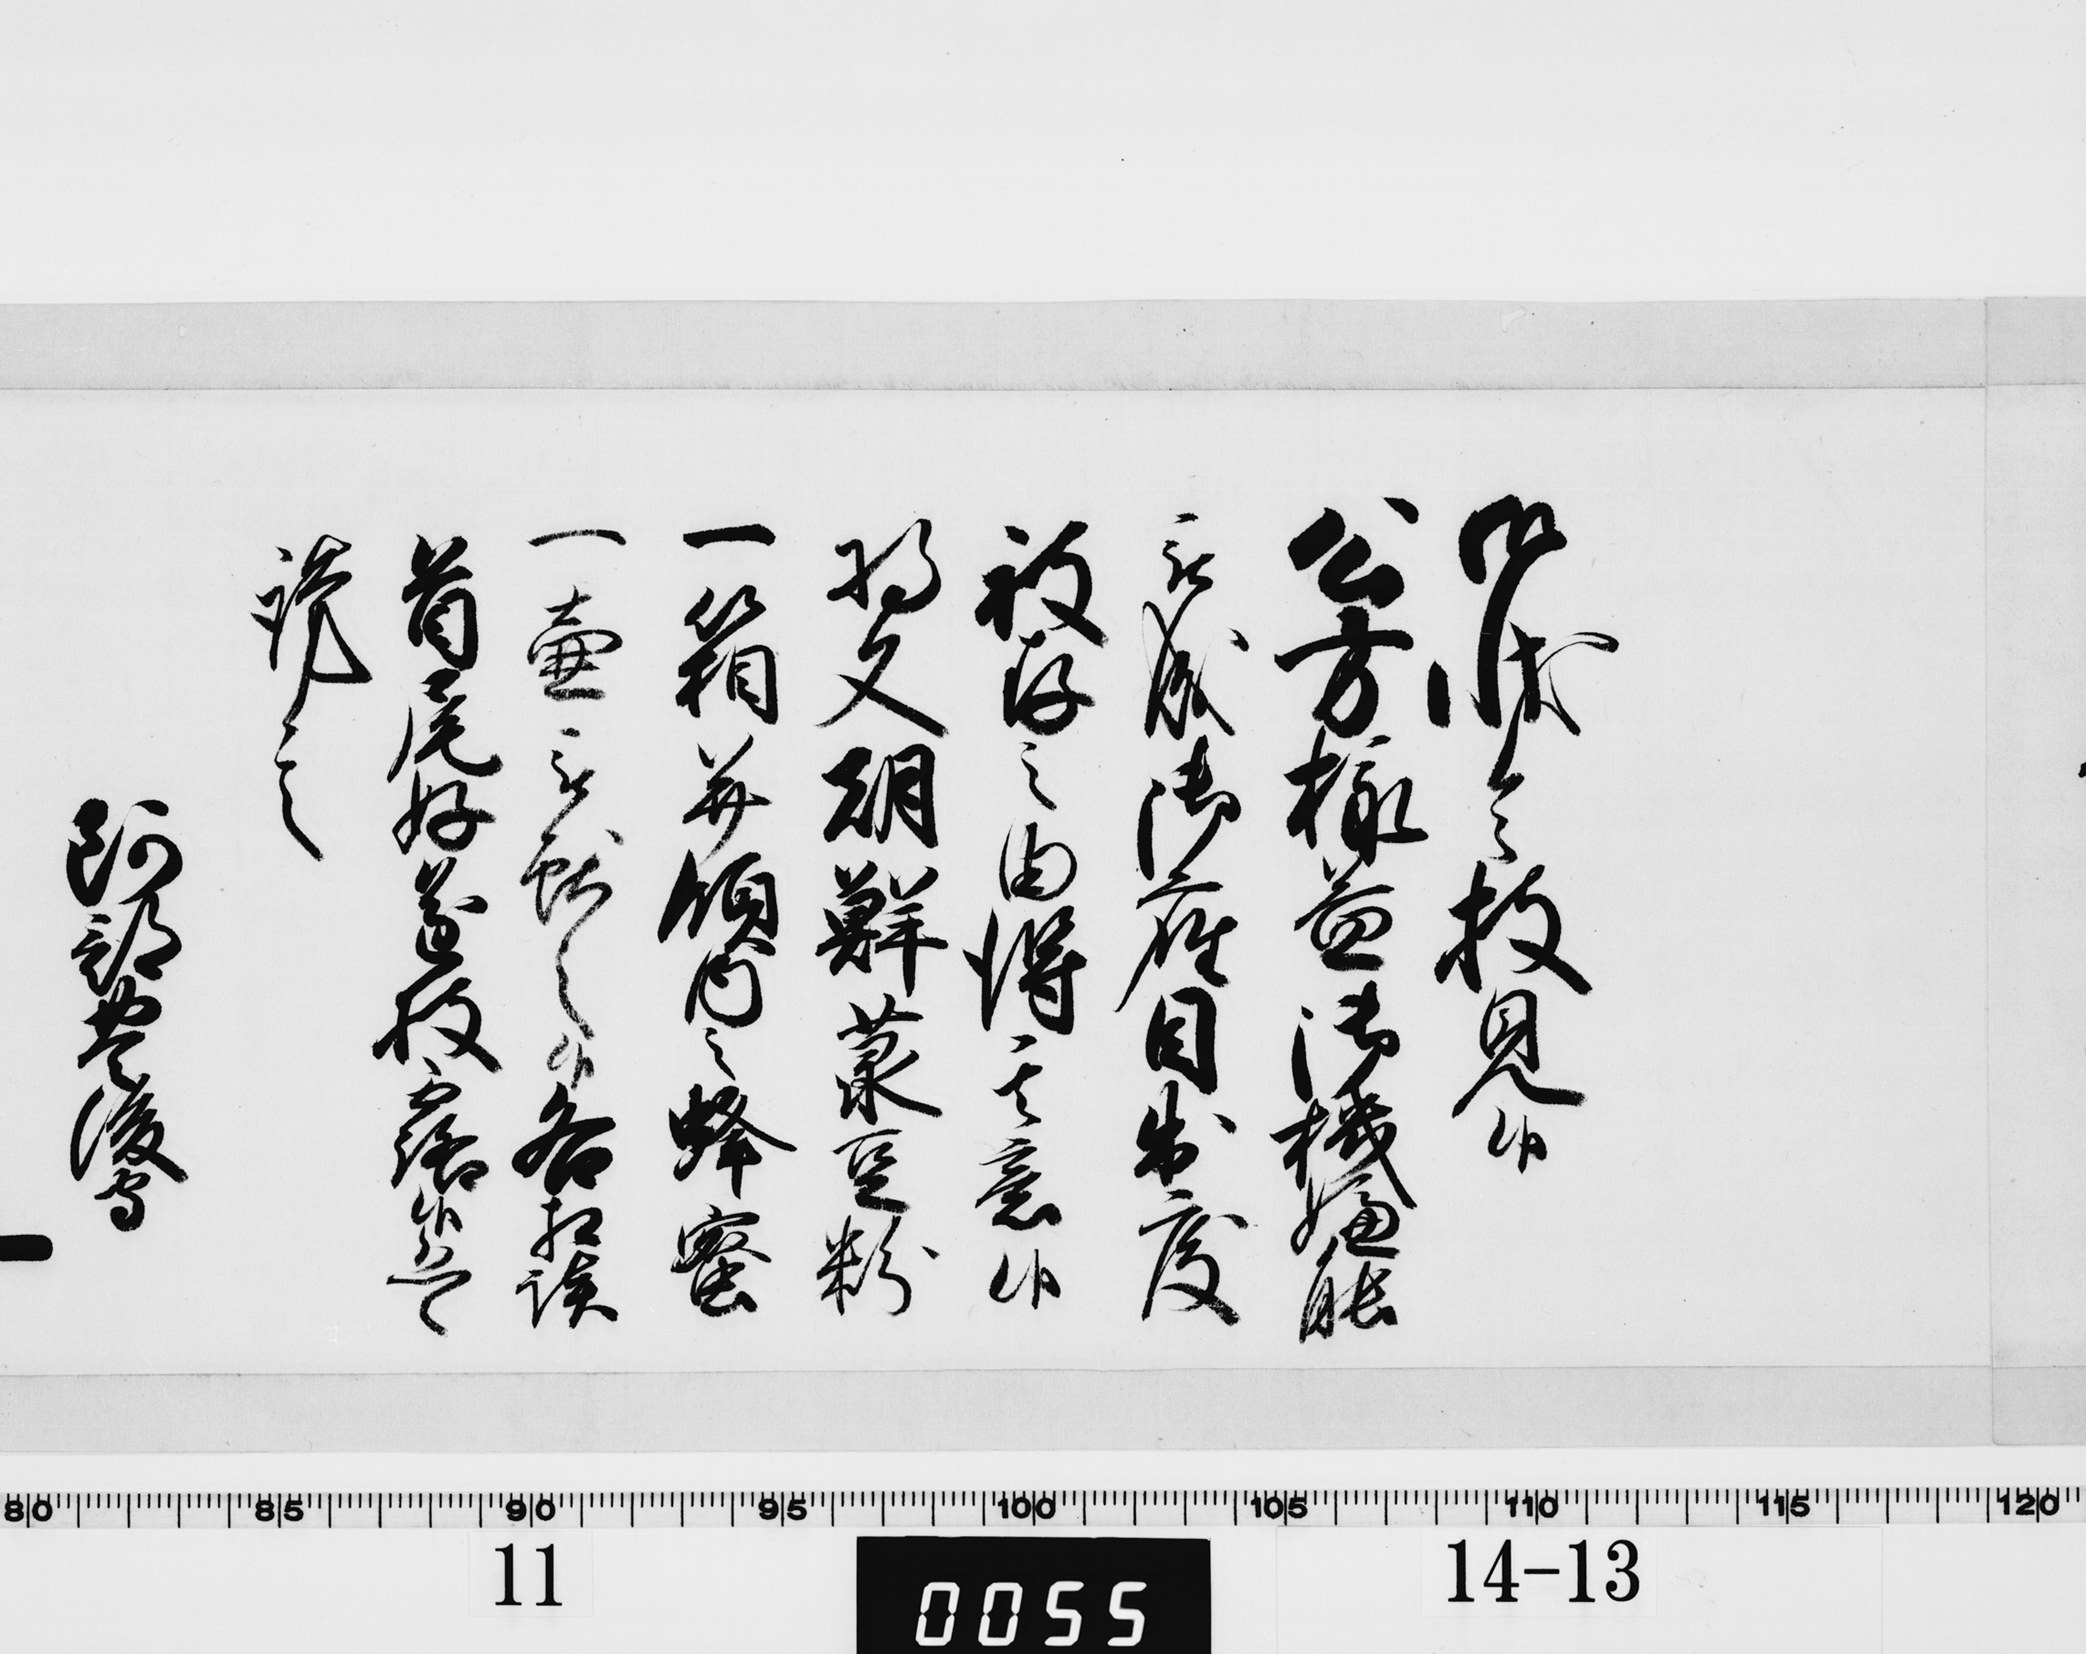 御状令披見候
公方様益御機嫌能
被成御座目出度
被存之由得其意候
将又朝鮮菉豆粉
一箱并領内之蜂蜜
一壷被献之候各相談
首尾好遂披露候恐々
謹言
阿部豊後守
80 85 90 95 100 105 110 115 120
11
0055
14-13